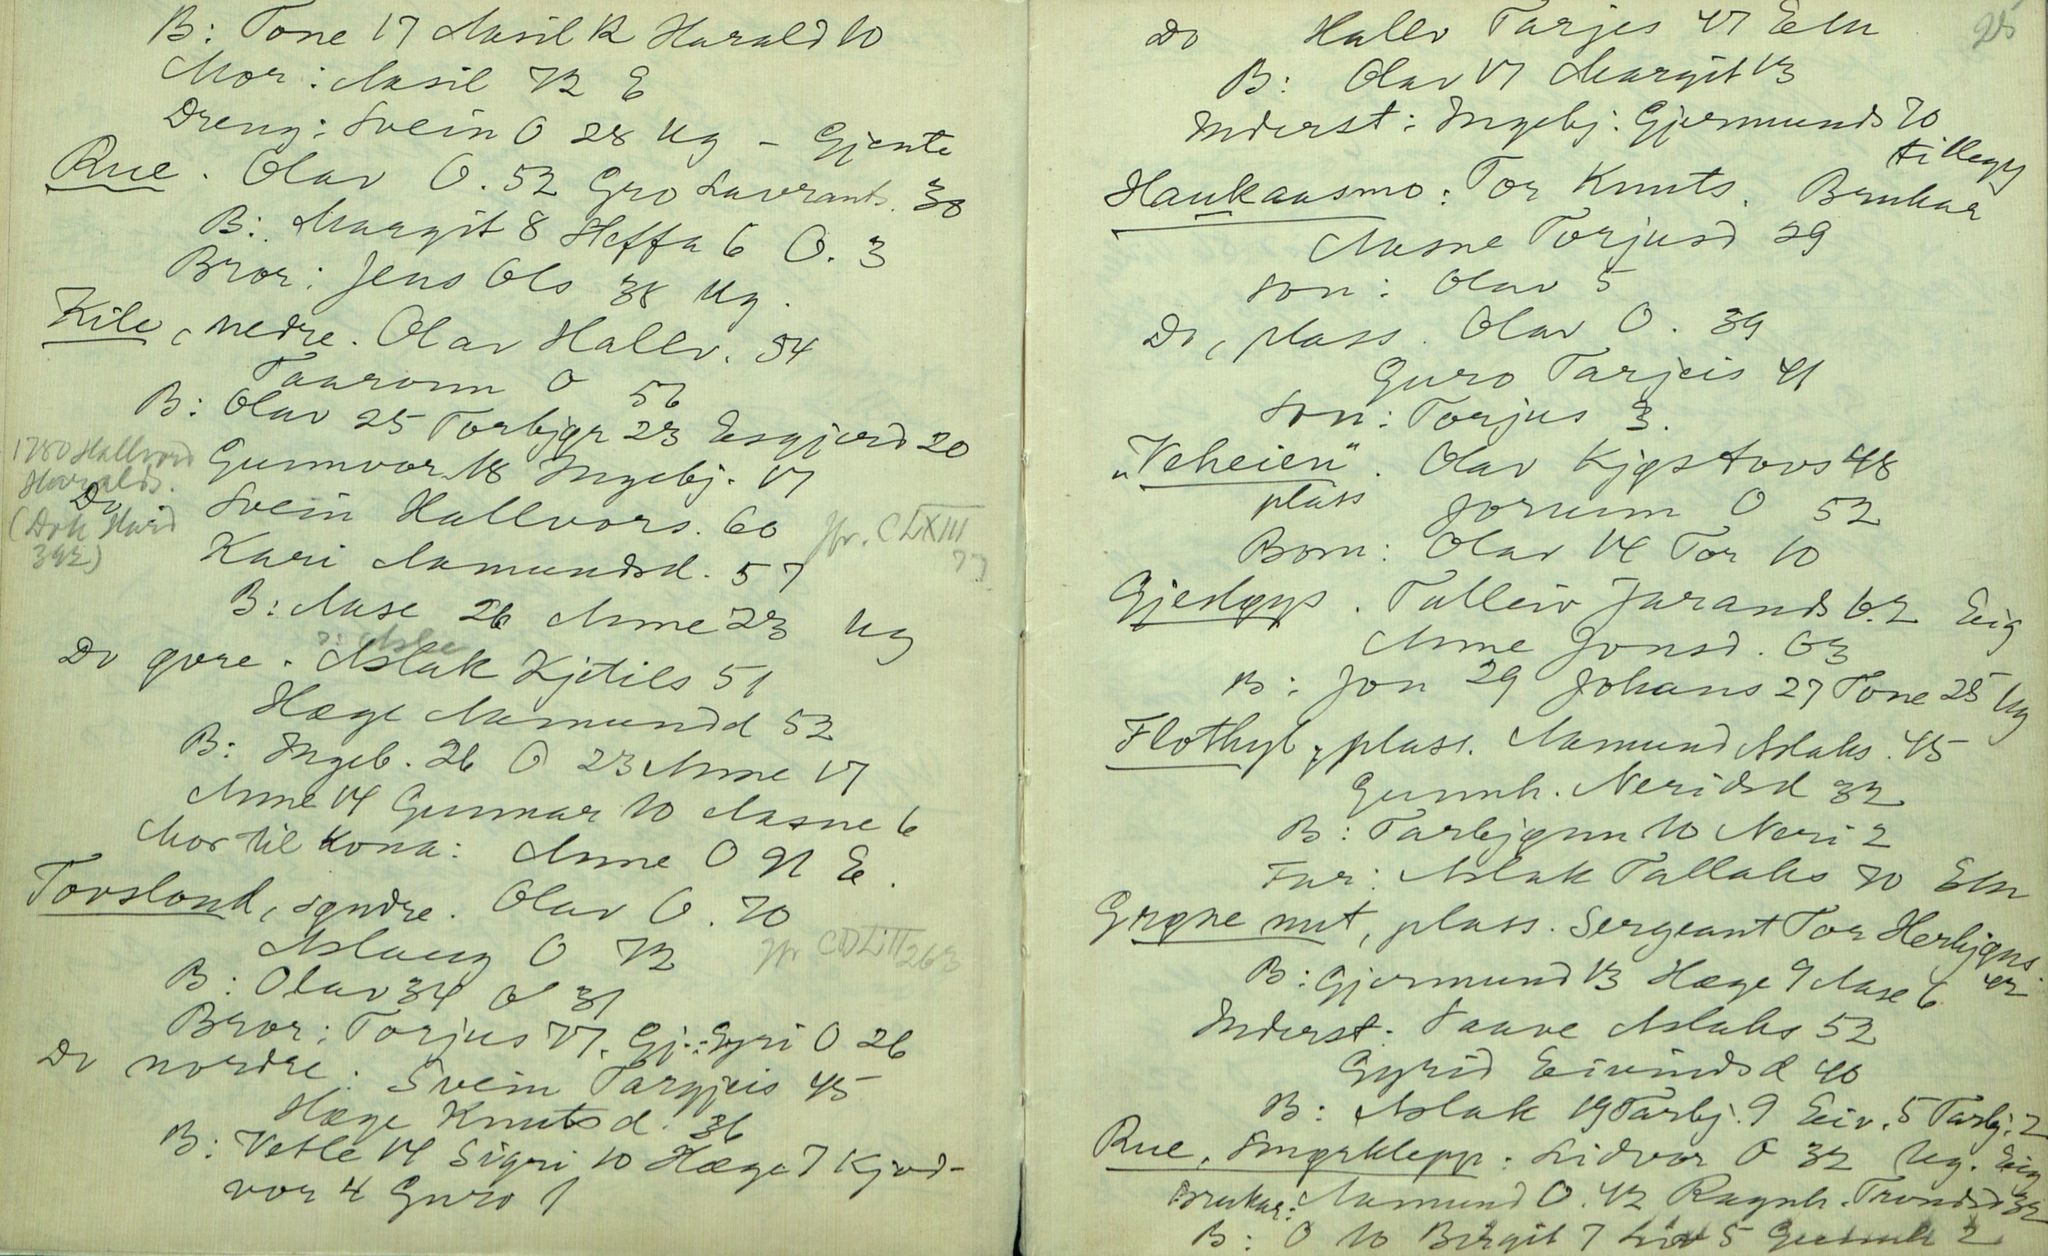 B: Tone 17 Aasil 12 Harald 10
Mor: Aasil 72 E
Dreng: Svein O 28 Ug – Gjente
Rue. Olav O. 52 Gro Lavrants. 38
B: Margit 8 Heffa 6 O. 3
Bror: Jens Ols 38 Ug.
Kile, nedre. Olav Hallv. 54
Taaronn O 56
B: Olav 25 Torbjør 23 Esgjerd 20
1780 Hallvord Gunnvor 18 Ingebj. 17
Haralds.
Do. Svein Hallvors. 60 Jfr. CLXIII
(Dok Hard 392) 77
Kari Aamundsd. 57
B: Aase 26 Anne 23 Ug
Do øvre. Aslak Kjetils 51
Hæge Aamundd 52
B: Ingeb. 26 O 23 Anne 17
Anne 14 Gunnar 10 Aasne 6
Mor til kona: Anne O 91 E.
Tovsland, søndre. Olav O. 70
Aslaug O 72 jfr CDLIII 263
B: Olav 34 O 31
Bror: Torjus 77. Gj.: Gyri O 26
Do nordre: Svein Targjeis 45
Hæge Knutsd. 36
B: Vetle 14 Sigri 10 Hæge 7 Kjød-
vor 4 Guro 1
25
Do Hallv Tarjes 47 Elu
B: Olav 17 Margit 13
Inderst: Ingebj. Gjermunds 70
tillegg
Haukaasmo: Tor Knuts. Brukar
Aasne Torjusd 29
Son: Olav 5
Do, plass. Olav O. 39
Guro Tarjeis 41
Son: Torjus 3.
"Veheien". Olav Kjøstovs 48
plass Jorunn O 52
Born: Olav 14 Tor 10
Gjesløys. Talleiv Jarands 62 Eig
Anne Jonsd. 63
B: Jon 29 Johans 27 Tone 25 Ug
Flothyl, plass. Aamund Aslaks. 45
Gunnh. Neridsd 32
B: Tarbjønn 10 Neri 2
Far: Aslak Tallaks 70 Elu
Grøne nut, plass. Sergeant Tor Herbjøns.
42
B: Gjermund 13 Hæge 9 Aase 6
Inderst: Taave Aslaks 52
Gyrid Eivindsd 40
B: Aslak 19 Tarbj. 9 Eiv. 5 Tarbj. 2
Rue, Smørklepp: Lidvor O 32 Ug. Eig
Brukar: Aamund O. 42 Ragnh. Trondsd 32
B: O 10 Birgit 7 Liv 5 2